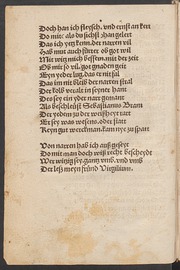 Doch han ich fleysch, vnd ernst an kert
Do mit / als du sichst / han gelert
Das ich yetz kenn, der narren vil
Hab mut auch fürter ob got wil
Mit witz mich bessern, mit der zeit
Ob mir so vil, got gnaden geit
Eyn yeder lug, das er nit fäl
Das im nit bleib der narren sträl
Der kolb veralt in seyner handt
Des sey eyn yeder narr gemant
Als beschleüst Sebastianus Brant
Der yedem zu der weißheyt ratt
Er sey was wesens, oder statt
Keyn gut werckman, kam nye zu spatt
Von narren hab ich auß geseyt
Do mit man doch wiß recht bescheydt
Wer witzig sey, gantz vmb, vnd vmb
Der leß meyn fründ Virgilium.